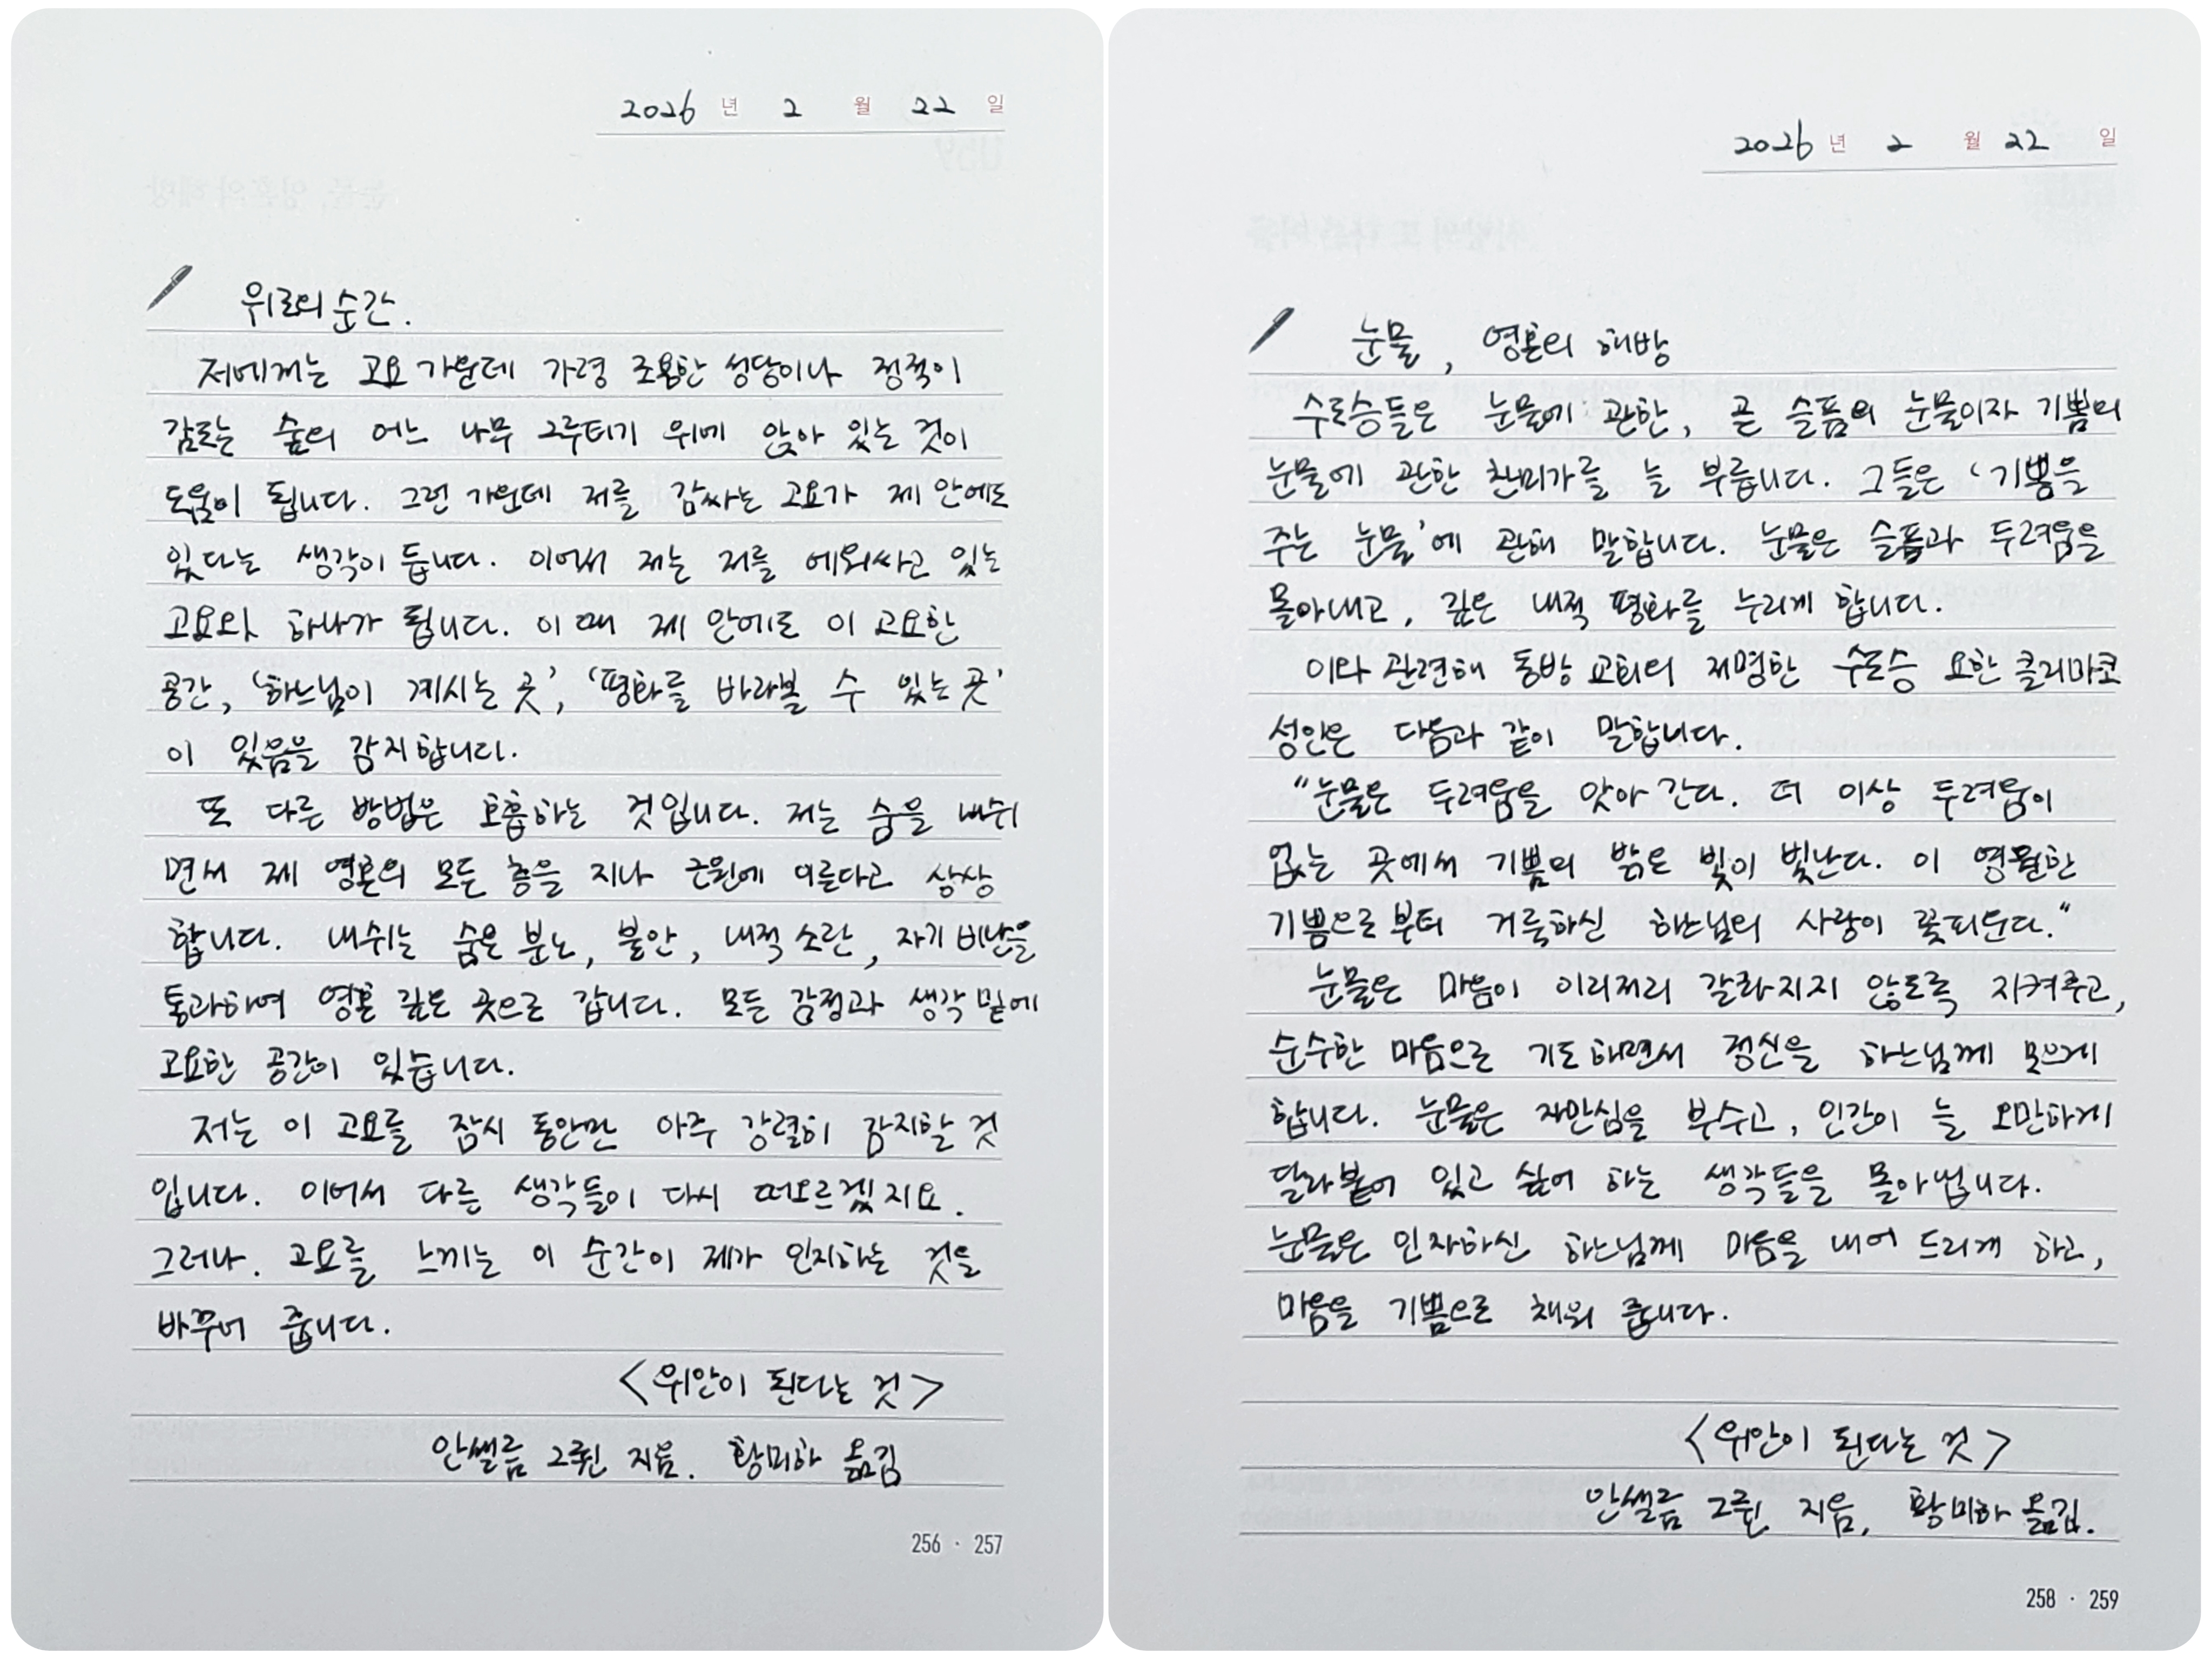 2026 년 2 월 22 일
위로의 순간.
저에게는 고요 가운데 가령 조용한 성당이나 정적이
감도는 숲의 어느 나무 그루터기 위에 앉아 있는 것이
도움이 됩니다. 그런 가운데 저를 감싸는 고요가 제 안에도
있다는 생각이 듭니다. 이어서 저는 저를 에워싸고 있는
고요와 하나가 됩니다. 이 때 제 안에도 이 고요한
공간, '하느님이 계시는 곳', '평화를 바라볼 수 있는 곳'
이 있음을 감지합니다.
또 다른 방법은 호흡하는 것입니다. 저는 숨을 내쉬
면서 제 영혼의 모든 층을 지나 근원에 이른다고 상상
합니다. 내쉬는 숨은 분노, 불안, 내적 소란, 자기 비난을
통과하여 영혼 깊은 곳으로 갑니다. 모든 감정과 생각 밑에
고요한 공간이 있습니다.
저는 이 고요를 잠시 동안만 아주 강렬히 감지할 것
입니다. 이어서 다른 생각들이 다시 떠오르겠지요.
그러나. 고요를 느끼는 이 순간이 제가 인지하는 것을
바꾸어 줍니다.
<위안이 된다는 것>
안셀름 그륀 지음. 황미하 옮김
256 · 257
2026 년 2 월 22 일
눈물, 영혼의 해방
수도승들은 눈물에 관한, 곧 슬픔의 눈물이자 기쁨의
눈물에 관한 찬미가를 늘 부릅니다. 그들은 '기쁨을
주는 눈물'에 관해 말합니다. 눈물은 슬픔과 두려움을
몰아내고, 깊은 내적 평화를 누리게 합니다.
이와 관련해 동방 교회의 저명한 수도승 요한 클리마코
성인은 다음과 같이 말합니다.
"눈물은 두려움을 앗아 간다. 더 이상 두려움이
없는 곳에서 기쁨의 밝은 빛이 빛난다. 이 영원한
기쁨으로부터 거룩하신 하느님의 사랑이 꽃피운다."
눈물은 마음이 이리저리 갈라지지 않도록 지켜주고,
순수한 마음으로 기도하면서 정신을 하느님께 모으게
합니다. 눈물은 자만심을 부수고, 인간이 늘 오만하게
달라붙어 있고 싶어 하는 생각들을 몰아냅니다.
눈물은 인자하신 하느님께 마음을 내어 드리게 하고,
마음을 기쁨으로 채워 줍니다.
<위안이 된다는 것>
안셀름 그륀 지음, 황미하 옮김.
258 · 259